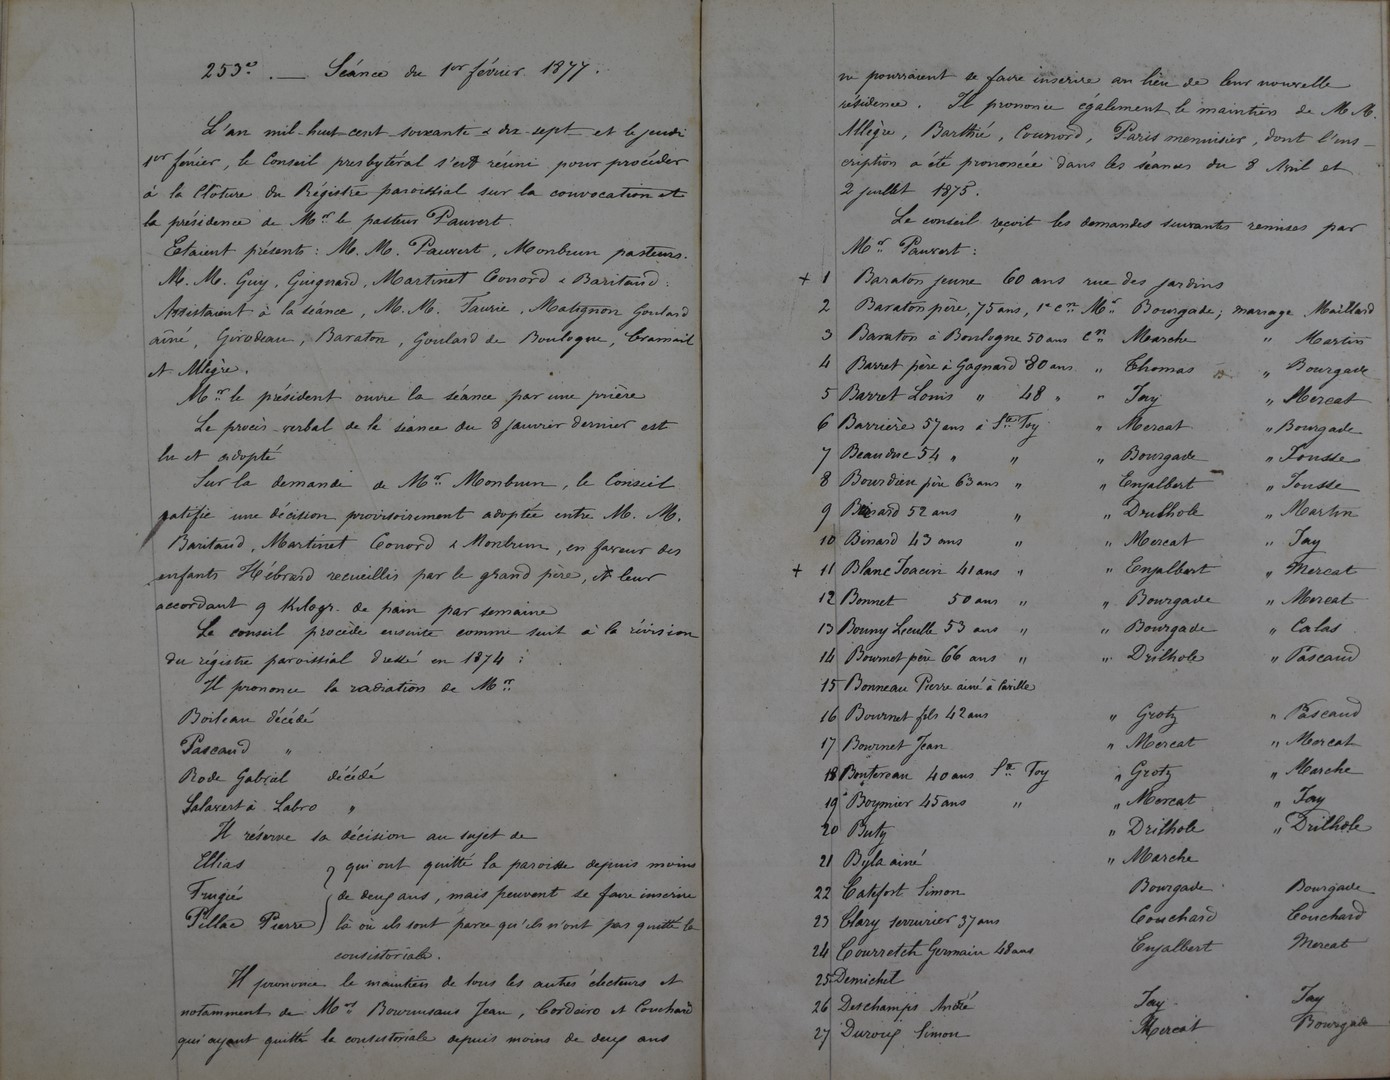 253e. — Séance du 1er février 1877.
L'an mil-huit-cent soixante & dix-sept et le jeudi
1er février, le Conseil presbytéral s'est réuni pour procéder
à la clôture du Régistre paroissial sur la convocation et
la présidence de Mr le pasteur Pauvert.
Etaient présents : M. M. Pauvert, Monbrun pasteurs.
M. M. Guy, Guignard, Martinet Conord & Baritaud.
Assistaient à la séance, M. M. Faurie, Matignon Goulard
aîné, Girodeau, Baraton, Goulard de Boulogne, Cramail
et Allègre.
Mr le président ouvre la séance par une prière
Le procès-verbal de la séance du 8 janvier dernier est
lu et adopté
Sur la demande de Mr Monbrun, le Conseil
ratifie une décision provisoirement adoptée entre M. M.
Baritaud, Martinet Conord & Monbrun, en faveur des
enfants Hébrard recueillis par le grand père, leur
accordant 9 Kilogr. de pain par semaine
Le conseil procède ensuite comme suit à la révision
du régistre paroissial dressé en 1874 :
Il prononce la radiation de Mrs
Boileau décédé
Pascaud "
Rode Gabriel décédé
Salavert à Labro "
Il réserve sa décision au sujet de
Ellias } qui ont quitté la paroisse depuis moins
Frugier de deux ans, mais peuvent se faire inscrire
Pillac Pierre ) là où ils sont parce qu'ils n'ont pas quitté la
consistoriale.
Il prononce le maintien de tous les autres électeurs et
notamment de Mrs Bournsaus Jean, Cordeiro et Couchard
qui ayant quitté la consistoriale depuis moins de deux ans
ne pourraient se faire inscrire au lieu de leur nouvelle
résidence. Il prononce également le maintien de M M.
Allègre, Barthié, Counord, Paris menuisier, dont l'ins-
cription a été prononcée dans les séances du 8 Avril et
2 juillet 1875.
Le conseil reçoit les demandes suivantes remises par
Mr Pauvert :
+ 1 Baraton jeune 60 ans rue des jardins
2 Baraton père, 75 ans, 1e con Mr Bourgade; mariage Maillard
3 Baraton à Boulogne 50 ans con Marche " Martin
4 Barret père à Gagnard 80 ans " Thomas " Bourgade
5 Barret Louis " 48 " " Jay " Mercat
6 Barrière 57 ans à Ste Foy " Mercat " Bourgade
7 Beauduc 54 " " " Bourgade " Jousse
8 Bourdieu père 63 ans " " Enjalbert " Jousse
9 Binard 52 ans " " Drilhole " Martin
10 Benard 43 ans " " Mercat " Jay
+ 11 Blanc Joacin 41 ans " " Enjalbert " Mercat
12 Bonnet 50 ans " " Bourgade " Mercat
13 Bouny Leculle 53 ans " " Bourgade " Calas
14 Bournet père 66 ans " " Drilhole " Pascaud
15 Bonneau Pierre ainé à laville
16 Bournet fils 42 ans " Grotz " Pascaud
17 Bournet Jean " Mercat " Mercat
18 Boutereau 40 ans Ste Foy " Grotz " Marche
19 Boymier 45 ans " " Mercat " Jay
20 Buty " Drilhole " Drilhole
21 Byla ainé " Marche
22 Catifort Simon Bourgade Bourgade
23 Clary serrurier 37 ans Couchard Couchard
24 Courretch Germain 48 ans Enjalbert Mercat
25 Demichel
26 Deschamps André Jay Jay
27 Duroux Simon Mercat Bourgade